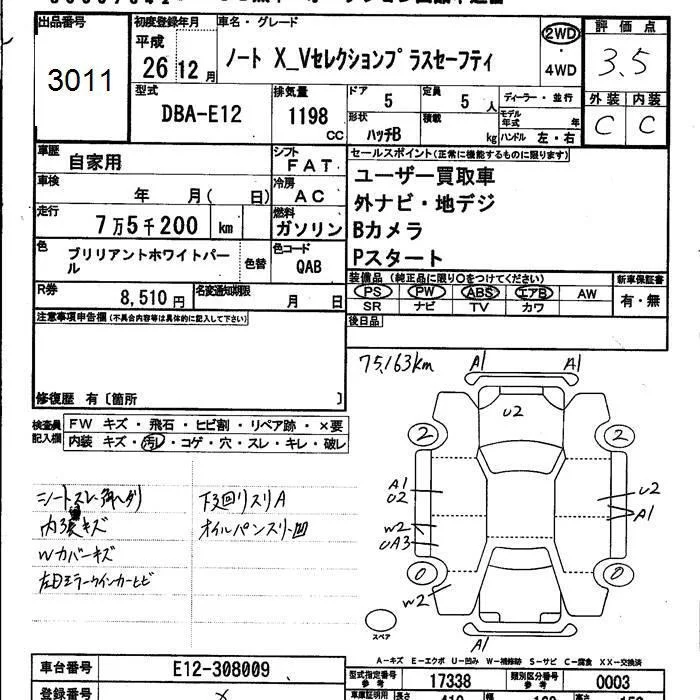 出品番号
3011
初度登録年月
平成
26 12月
車名・グレード
ノート X_Vセレクションプラスセーフティ
2WD
・
4WD
評価点
3.5
外装 内装
C C
型式
DBA-E12
排気量
1198
CC
ドア
5
定員
5 人
形状
ハッチB
積載
kg
ディーラー・並行
モデル年式 年
ハンドル 左・右
車歴
自家用
シフト
FAT
車検
年 月( 日)
冷房
AC
走行
7万5千200 km
燃料
ガソリン
色
ブリリアントホワイトパール
色替
色コード
QAB
R券
8,510円
名変通知期限
月 日
セールスポイント(正常に機能するものに限ります)
ユーザー買取車
外ナビ・地デジ
Bカメラ
Pスタート
装備品(純正品に限り○をつけてください)
PS PW ABS エアB AW
SR ナビ TV カワ
新車保証書
有・無
後日品
注意事項申告欄(不具合内容等は具体的に記入して下さい)
修復歴 有〔箇所 〕
検査員記入欄
FW キズ・飛石・ヒビ割・リペア跡・×要
内装 キズ・汚レ・コゲ・穴・スレ・キレ・破レ
75,163km
A1 A1
U2
2 2
A1
U2
U2
A1
W2
UA3
0 0
W2
A1
スペア
シートスレ
内張キズ
Wカバーキズ
左ドアミラーウインカーヒビ
下回リスリA
オイルパンスリ凹
A−キズ E−エクボ U−凹み W−補修跡 S−サビ C−腐食 XX−交換済
車台番号
E12-308009
登録番号
型式指定番号
参考
17338
類別区分番号
参考
0003
車庫証明用
参考
長さ
410
幅
169
高さ